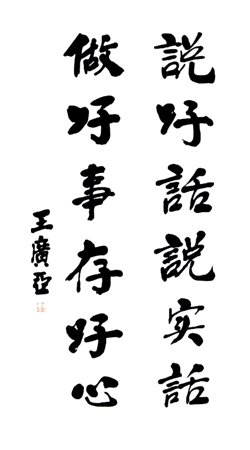 說好話說实話
做好事存好心
王廣亞